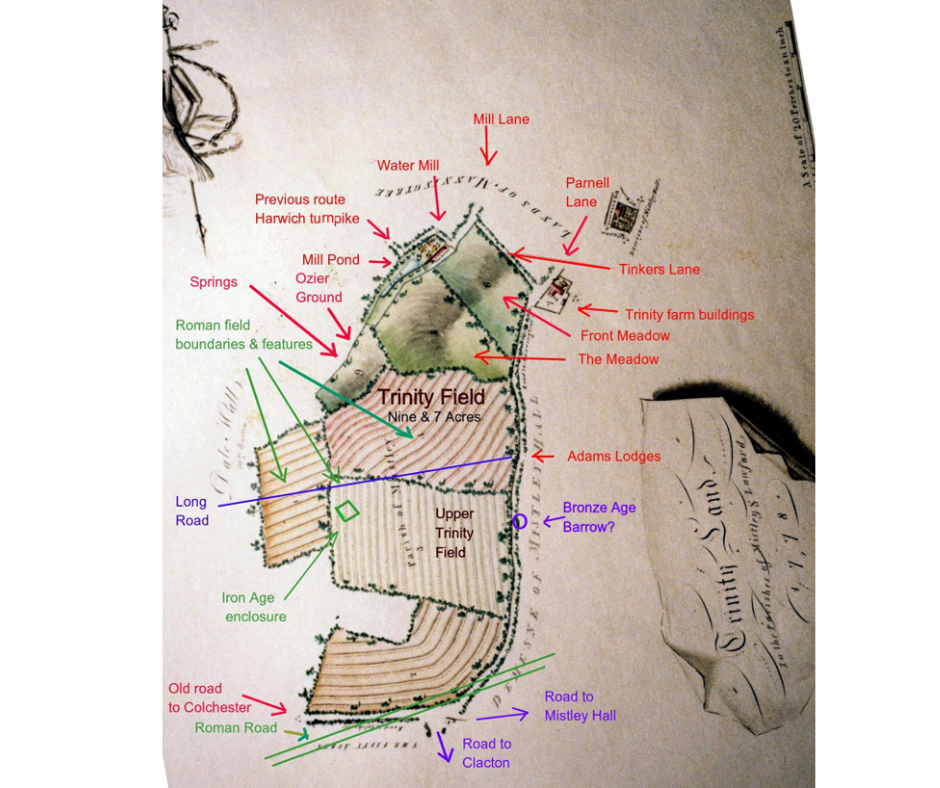 A Scale of 20 Perches to an Inch
Mill Lane
Water Mill
LANDS OF MANNINGTREE
Parnell
Lane
Previous route
Harwich turnpike
Mill Pond
Tinkers Lane
Ozier
Ground
Springs
Trinity farm buildings
Front Meadow
Roman field
boundaries & features
The Meadow
Trinity Field
Nine & 7 Acres
Dale Hall
Adams Lodges
Long
Road
Upper
Trinity
Field
Parrish of Mistley
3
Bronze Age
Barrow?
DEMESNE OF MISTLEY HALL
Trinity Land
in the Parishes of Mistley & Lawford
1,7,7,8.
Iron Age
enclosure
2
Old road
to Colchester
Roman Road
THE FIFTY ACRES
Road to
Mistley Hall
Road to
Clacton